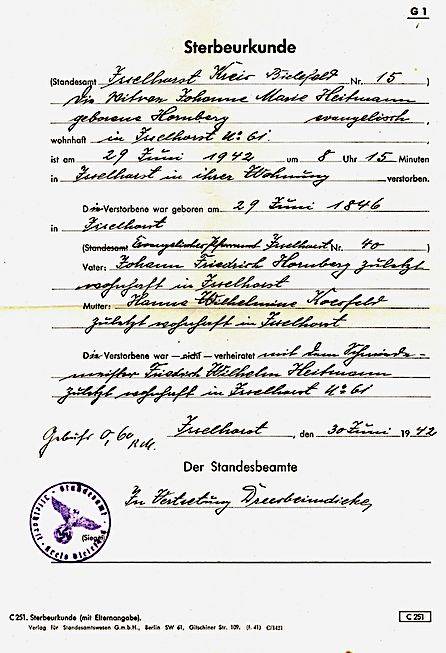 G 1
Sterbeurkunde
(Standesamt Isselhorst Kreis Bielefeld Nr. 15)
Die Witwe Johanne Marie Heitmann
geborene Hornberg evangelisch,
wohnhaft in Isselhorst No 61.
ist am 29 Juni 1942 um 8 Uhr 15 Minuten
in Isselhorst in ihrer Wohnung verstorben.
Die Verstorbene war geboren am 29 Juni 1846
in Isselhorst
(Standesamt Evangelisches Pfarramt Isselhorst Nr. 40)
Vater: Johann Friedrich Hornberg zuletzt
wohnhaft in Isselhorst
Mutter: Hanne Wilhelmine
zuletzt wohnhaft in Isselhorst
Die Verstorbene war — nicht — verheiratet mit dem Schmiede-
meister Friedrich Wilhelm Heitmann
zuletzt wohnhaft in Isselhorst No 61
Gebühr 0,60 RM. Isselhorst, den 30 Juni 1942
Der Standesbeamte
In Vertretung
(Siegel)
Standesamt Isselhorst
Kreis Bielefeld
C 251. Sterbeurkunde (mit Elternangabe). C 251
Verlag für Standesamtswesen G.m.b.H., Berlin SW 61, Gitschiner Str. 109. (f. 41) C/1421